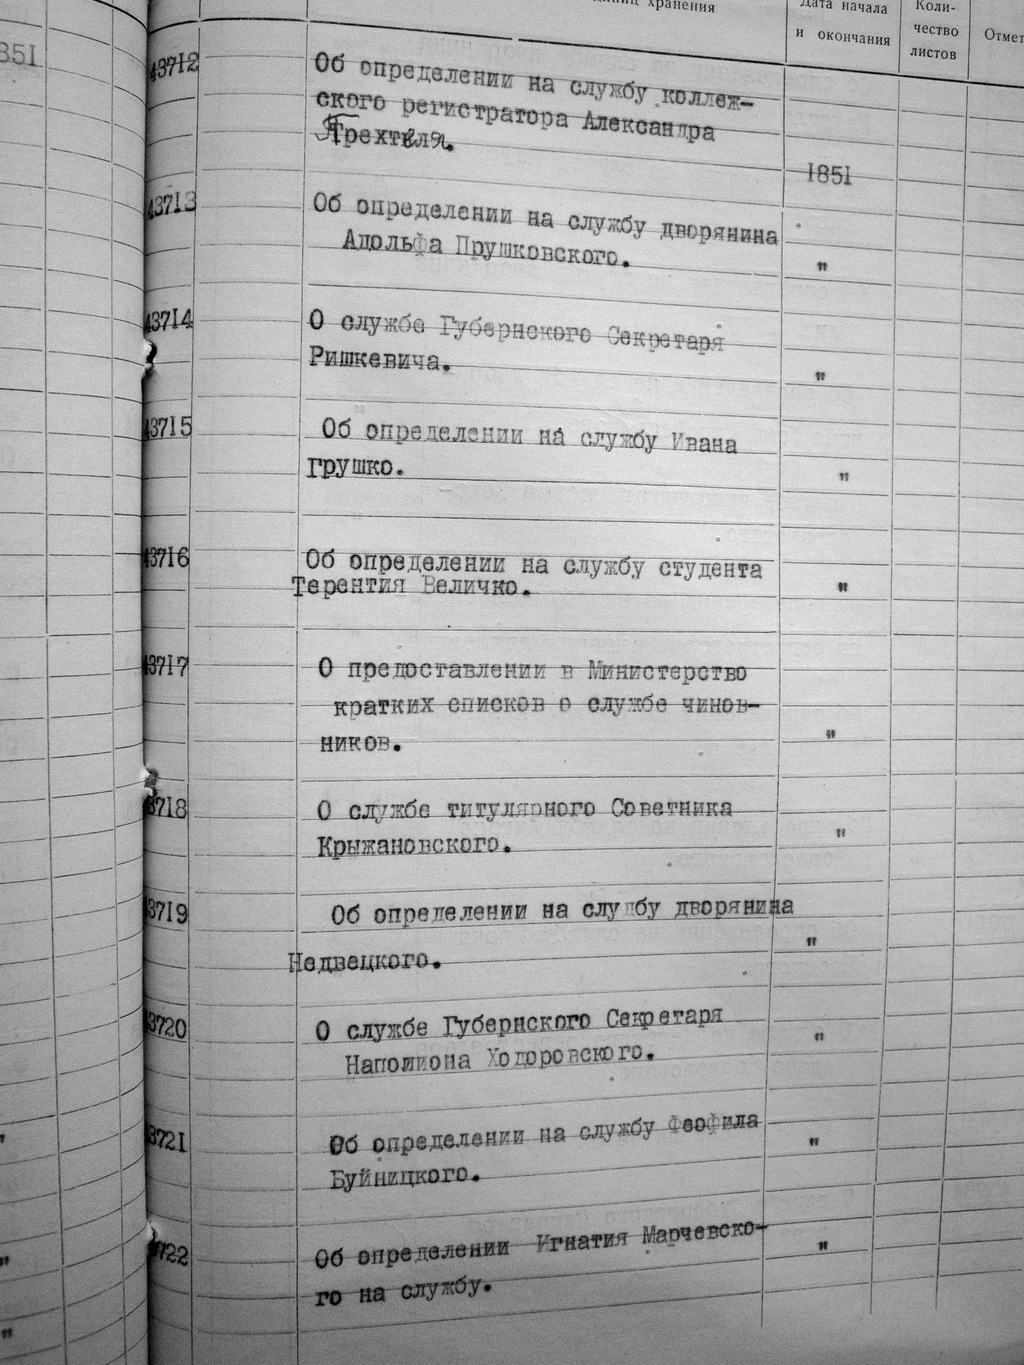 единиц хранения
Дата начала
и окончания
Коли-
чество
листов
Отмет
851
43712
Об определении на службу коллеж-
ского регистратора Александра
Трехтеля.
1851
43713
Об определении на службу дворянина
Адольфа Прушковского.
"
43714
О службе Губернского Секретаря
Ришкевича.
"
43715
Об определении на службу Ивана
грушко.
"
43716
Об определении на службу студента
Терентия Величко.
"
43717
О предоставлении в Министерство
кратких списков о службе чинов-
ников.
"
43718
О службе титулярного Советника
Крыжановского.
"
43719
Об определении на службу дворянина
Недвецкого.
"
43720
О службе Губернского Секретаря
Наполиона Ходоровского.
"
43721
Об определении на службу Феофила
Буйницкого.
"
43722
Об определении Игнатия Марчевско-
го на службу.
"